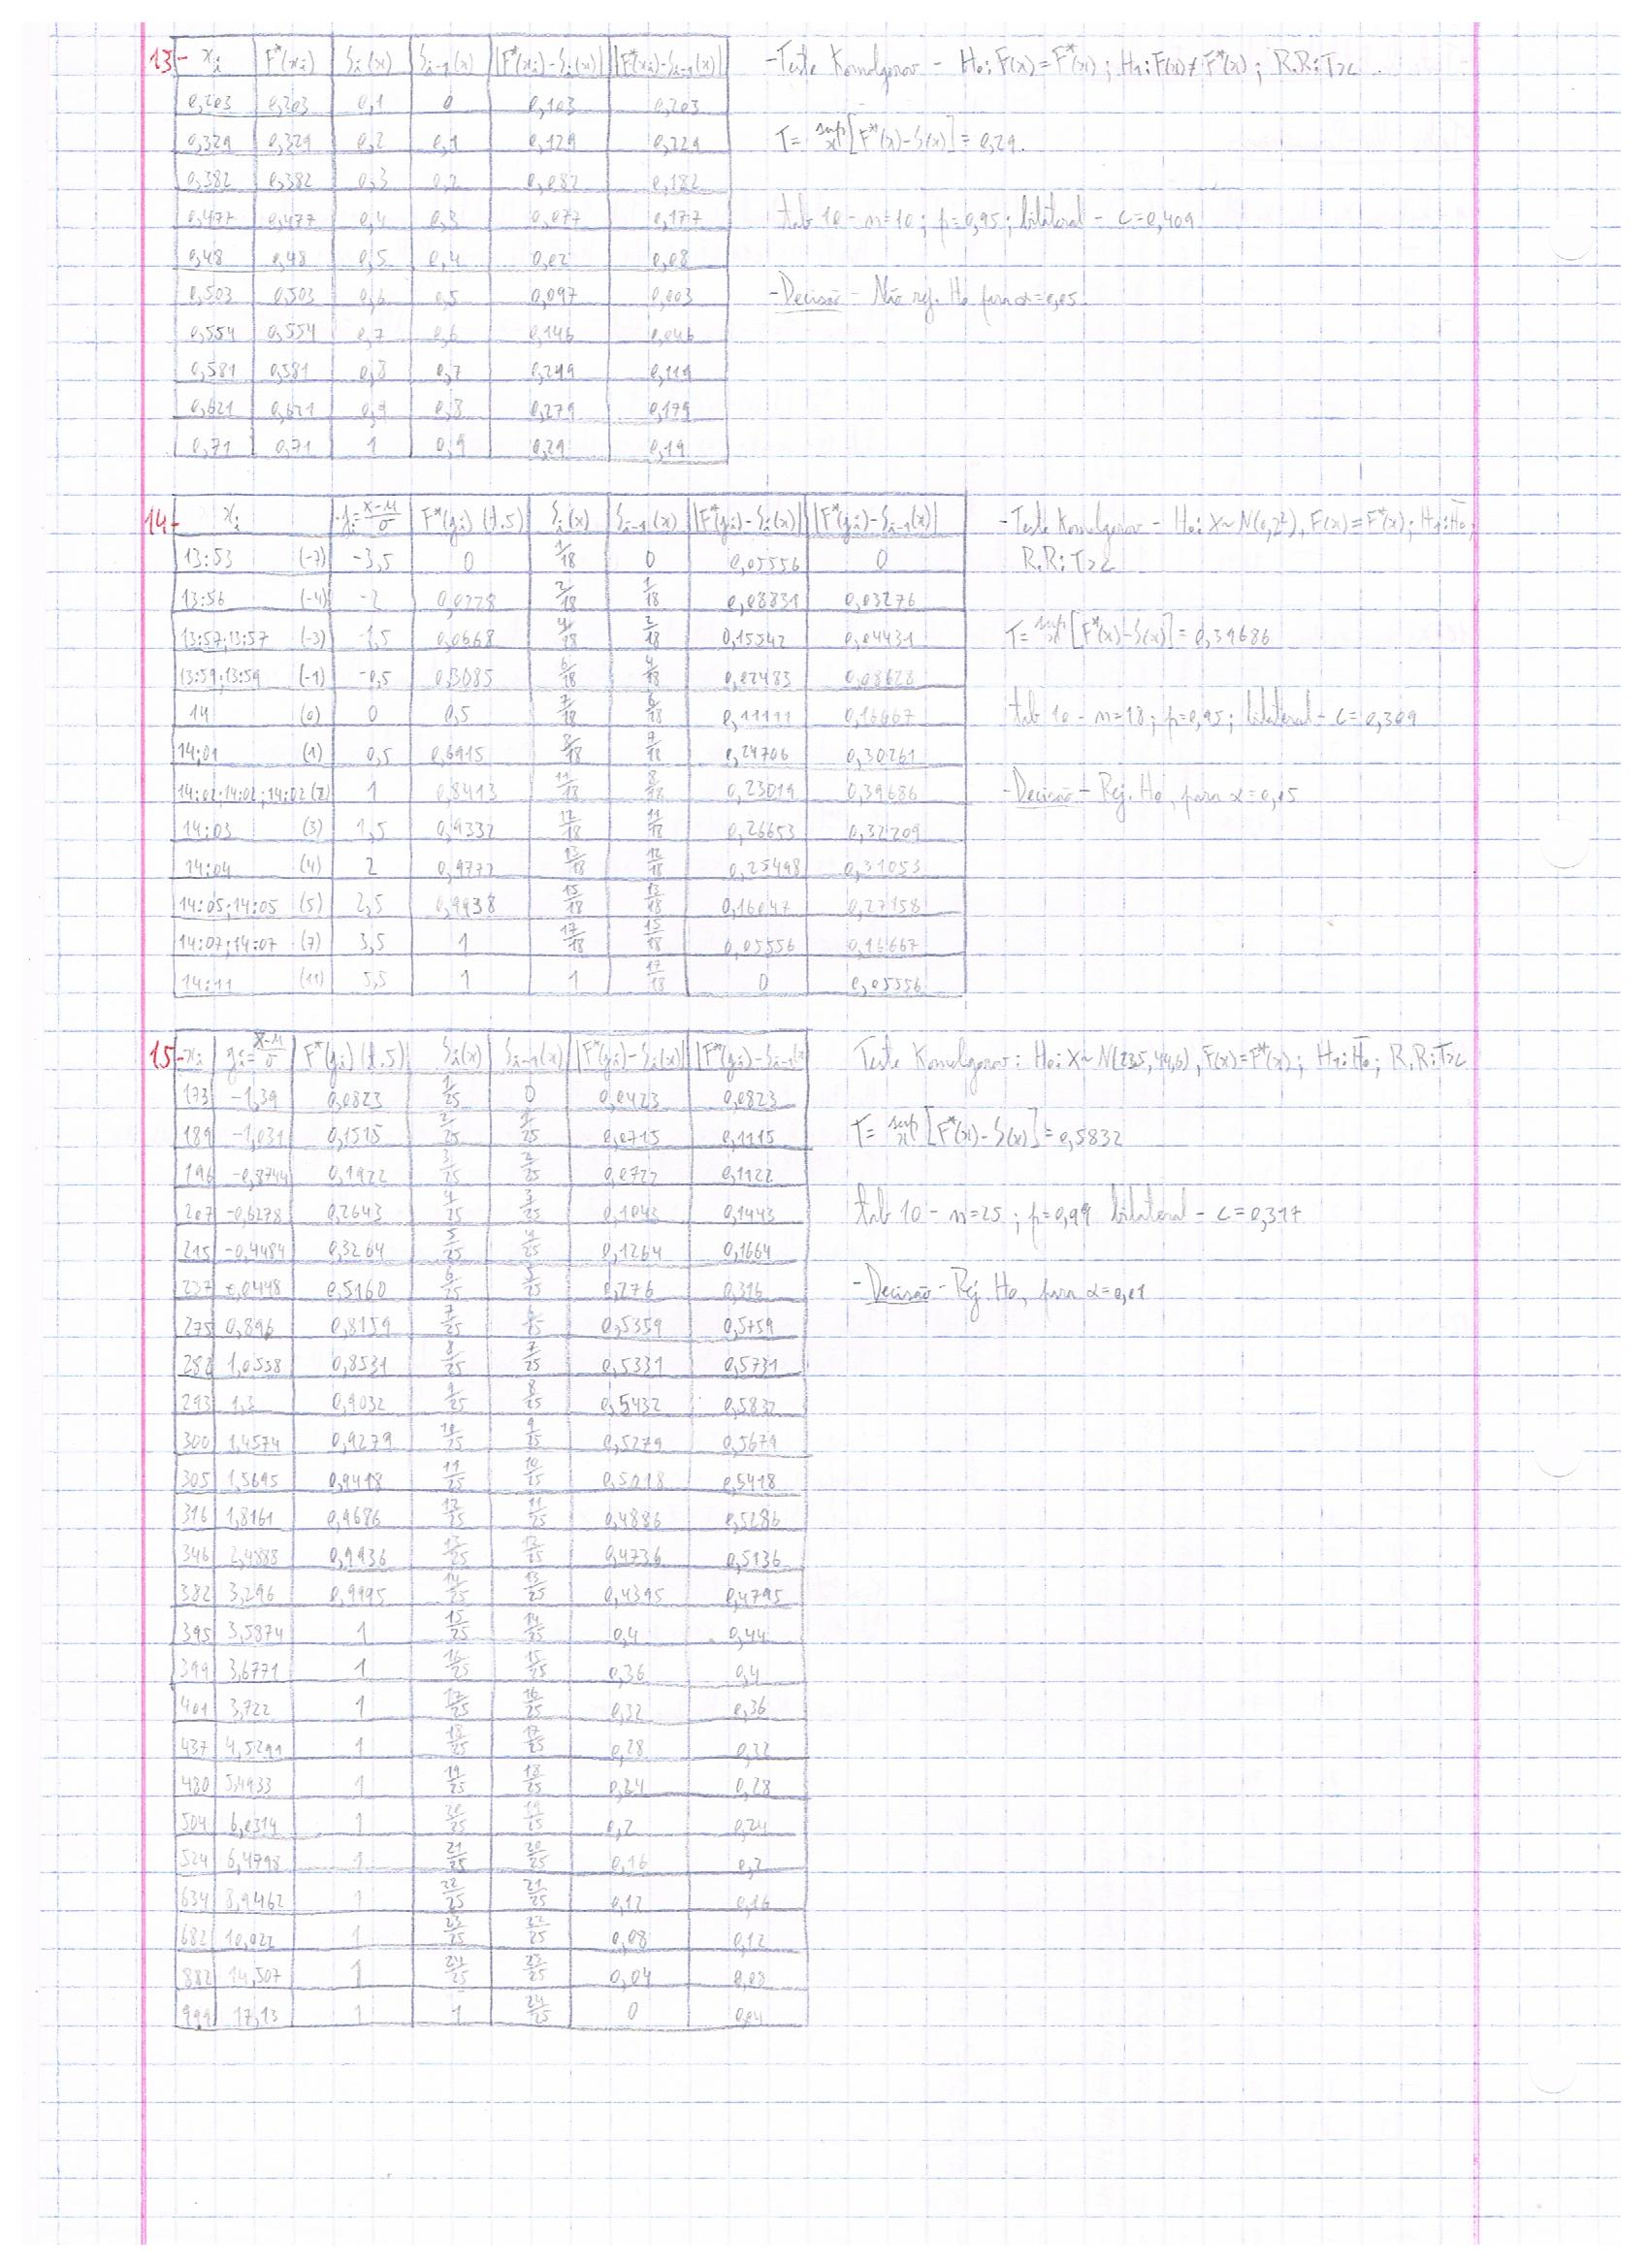 13- xᵢ | F*(xᵢ) | Sᵢ(x) | Sᵢ₋₁(x) | |F*(xᵢ)-Sᵢ(x)| | |F*(xᵢ)-Sᵢ₋₁(x)|
0,203 | 0,203 | 0,1 | 0 | 0,103 | 0,203
0,329 | 0,329 | 0,2 | 0,1 | 0,129 | 0,229
0,382 | 0,382 | 0,3 | 0,2 | 0,082 | 0,182
0,477 | 0,477 | 0,4 | 0,3 | 0,077 | 0,177
0,48 | 0,48 | 0,5 | 0,4 | 0,02 | 0,08
0,503 | 0,503 | 0,6 | 0,5 | 0,097 | 0,003
0,554 | 0,554 | 0,7 | 0,6 | 0,146 | 0,046
0,581 | 0,581 | 0,8 | 0,7 | 0,249 | 0,119
0,621 | 0,621 | 0,9 | 0,8 | 0,279 | 0,179
0,71 | 0,71 | 1 | 0,9 | 0,29 | 0,19
-Teste Komolgorov - H₀: F(x)=F*(x); H₁: F(x)≠F*(x); R.R: T>c
T= sup x [F*(x)-S(x)]=0,29.
tab 10 - n=10; p=0,95; bilateral - c=0,409
-Decisão - Não rej. H₀ para α=0,05
14- xᵢ | zᵢ=(x-μ)/σ | F*(zᵢ) (t.5) | Sᵢ(x) | Sᵢ₋₁(x) | |F*(zᵢ)-Sᵢ(x)| | |F*(zᵢ)-Sᵢ₋₁(x)|
13:53 (-7) | -3,5 | 0 | 1/18 | 0 | 0,05556 | 0
13:56 (-4) | -2 | 0,0228 | 2/18 | 1/18 | 0,08831 | 0,03276
13:57;13:57 (-3) | -1,5 | 0,0668 | 4/18 | 2/18 | 0,15542 | 0,04431
13:59;13:59 (-1) | -0,5 | 0,3085 | 6/18 | 4/18 | 0,02483 | 0,08628
14 (0) | 0 | 0,5 | 7/18 | 6/18 | 0,11111 | 0,16667
14:01 (1) | 0,5 | 0,6915 | 8/18 | 7/18 | 0,24706 | 0,30261
14:02;14:02;14:02 (2) | 1 | 0,8413 | 11/18 | 8/18 | 0,23019 | 0,39686
14:03 (3) | 1,5 | 0,9332 | 12/18 | 11/18 | 0,26653 | 0,32209
14:04 (4) | 2 | 0,9772 | 13/18 | 12/18 | 0,25498 | 0,31053
14:05;14:05 (5) | 2,5 | 0,9938 | 15/18 | 13/18 | 0,16047 | 0,27158
14:07;14:07 (7) | 3,5 | 1 | 17/18 | 15/18 | 0,05556 | 0,16667
14:11 (11) | 5,5 | 1 | 1 | 17/18 | 0 | 0,05556
-Teste Komolgorov - H₀: X~N(0,2²), F(x)=F*(x); H₁: H̄₀;
R.R: T>c
T= sup x [F*(x)-S(x)]=0,39686
tab 10 - n=18; p=0,95; bilateral - c=0,309
-Decisão - Rej. H₀, para α=0,05
15- xᵢ | zᵢ=(x-μ)/σ | F*(zᵢ) (t.5) | Sᵢ(x) | Sᵢ₋₁(x) | |F*(zᵢ)-Sᵢ(x)| | |F*(zᵢ)-Sᵢ₋₁(x)|
173 | -1,39 | 0,0823 | 1/25 | 0 | 0,0423 | 0,0823
189 | -1,031 | 0,1515 | 2/25 | 1/25 | 0,0715 | 0,1115
196 | -0,8744 | 0,1922 | 3/25 | 2/25 | 0,0722 | 0,1122
207 | -0,6278 | 0,2643 | 4/25 | 3/25 | 0,1043 | 0,1443
215 | -0,4484 | 0,3264 | 5/25 | 4/25 | 0,1264 | 0,1664
237 | 0,0448 | 0,5160 | 6/25 | 5/25 | 0,276 | 0,316
275 | 0,896 | 0,8159 | 7/25 | 6/25 | 0,5359 | 0,5759
282 | 1,0538 | 0,8531 | 8/25 | 7/25 | 0,5331 | 0,5731
293 | 1,3 | 0,9032 | 9/25 | 8/25 | 0,5432 | 0,5832
300 | 1,4574 | 0,9279 | 10/25 | 9/25 | 0,5279 | 0,5679
305 | 1,5695 | 0,9418 | 11/25 | 10/25 | 0,5018 | 0,5418
316 | 1,8161 | 0,9686 | 12/25 | 11/25 | 0,4886 | 0,5286
346 | 2,4888 | 0,9936 | 13/25 | 12/25 | 0,4736 | 0,5136
382 | 3,296 | 0,9995 | 14/25 | 13/25 | 0,4395 | 0,4795
395 | 3,5874 | 1 | 15/25 | 14/25 | 0,4 | 0,44
399 | 3,6771 | 1 | 16/25 | 15/25 | 0,36 | 0,4
401 | 3,722 | 1 | 17/25 | 16/25 | 0,32 | 0,36
437 | 4,5291 | 1 | 18/25 | 17/25 | 0,28 | 0,32
480 | 5,4933 | 1 | 19/25 | 18/25 | 0,24 | 0,28
504 | 6,0314 | 1 | 20/25 | 19/25 | 0,2 | 0,24
524 | 6,4798 | 1 | 21/25 | 20/25 | 0,16 | 0,2
634 | 8,9462 | 1 | 22/25 | 21/25 | 0,12 | 0,16
682 | 10,022 | 1 | 23/25 | 22/25 | 0,08 | 0,12
882 | 14,507 | 1 | 24/25 | 23/25 | 0,04 | 0,08
999 | 17,13 | 1 | 1 | 24/25 | 0 | 0,04
Teste Komolgorov: H₀: X~N(235,44,6), F(x)=F*(x); H₁: H̄₀; R.R: T>c
T= sup x [F*(x)-S(x)]=0,5832
tab 10 - n=25; p=0,99 bilateral - c=0,317
-Decisão - Rej. H₀, para α=0,01